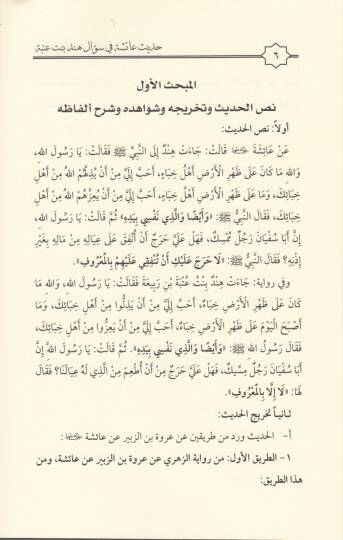 ٦
حديث عائشة في سؤال هند بنت عتبة
المبحث الأول
نص الحديث وتخريجه وشواهده وشرح ألفاظه
أولاً: نص الحديث:
عَنْ عَائِشَةَ ﵂ قَالَتْ: جَاءَتْ هِنْدٌ إِلَى النَّبِيِّ ﷺ فَقَالَتْ: يَا رَسُولَ اللهِ،
وَاللهِ مَا كَانَ عَلَى ظَهْرِ الْأَرْضِ أَهْلُ خِبَاءٍ، أَحَبَّ إِلَيَّ مِنْ أَنْ يُذِلَّهُمُ اللهُ مِنْ أَهْلِ
خِبَائِكَ، وَمَا عَلَى ظَهْرِ الْأَرْضِ أَهْلُ خِبَاءٍ، أَحَبَّ إِلَيَّ مِنْ أَنْ يُعِزَّهُمُ اللهُ مِنْ أَهْلِ
خِبَائِكَ، فَقَالَ النَّبِيُّ ﷺ: «وَأَيْضًا وَالَّذِي نَفْسِي بِيَدِهِ» ثُمَّ قَالَتْ: يَا رَسُولَ اللهِ،
إِنَّ أَبَا سُفْيَانَ رَجُلٌ مُمْسِكٌ، فَهَلْ عَلَيَّ حَرَجٌ أَنْ أُنْفِقَ عَلَى عِيَالِهِ مِنْ مَالِهِ بِغَيْرِ
إِذْنِهِ؟ فَقَالَ النَّبِيُّ ﷺ: «لَا حَرَجَ عَلَيْكِ أَنْ تُنْفِقِي عَلَيْهِمْ بِالْمَعْرُوفِ».
وفي رواية: جَاءَتْ هِنْدُ بِنْتُ عُتْبَةَ بْنِ رَبِيعَةَ فَقَالَتْ: يَا رَسُولَ اللهِ، وَاللهِ مَا
كَانَ عَلَى ظَهْرِ الْأَرْضِ خِبَاءٌ، أَحَبَّ إِلَيَّ مِنْ أَنْ يَذِلُّوا مِنْ أَهْلِ خِبَائِكَ، وَمَا
أَصْبَحَ الْيَوْمَ عَلَى ظَهْرِ الْأَرْضِ خِبَاءٌ، أَحَبَّ إِلَيَّ مِنْ أَنْ يَعِزُّوا مِنْ أَهْلِ خِبَائِكَ،
فَقَالَ رَسُولُ اللهِ ﷺ: «وَأَيْضًا وَالَّذِي نَفْسِي بِيَدِهِ». ثُمَّ قَالَتْ: يَا رَسُولَ اللهِ إِنَّ
أَبَا سُفْيَانَ رَجُلٌ مِسِّيكٌ، فَهَلْ عَلَيَّ حَرَجٌ مِنْ أَنْ أُطْعِمَ مِنَ الَّذِي لَهُ عِيَالَنَا؟ فَقَالَ
لَهَا: «لَا إِلَّا بِالْمَعْرُوفِ».
ثانياً تخريج الحديث:
أ- الحديث ورد من طريقين عن عروة بن الزبير عن عائشة ﵂:
١- الطريق الأول: من رواية الزهري عن عروة بن الزبير عن عائشة، ومن
هذا الطريق: